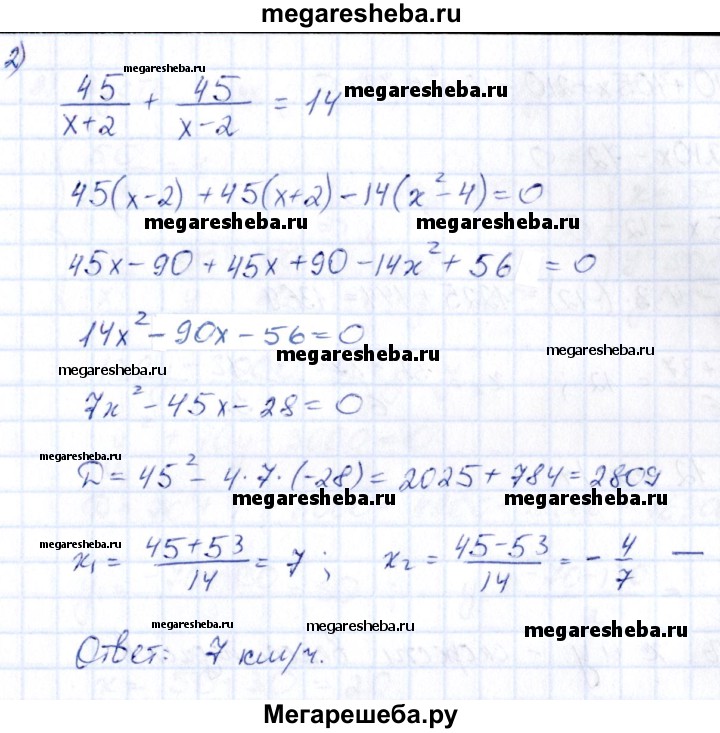 megaresheba.ru
2)
megaresheba.ru
45/(x+2) + 45/(x-2) = 14 megaresheba.ru
45(x-2) + 45(x+2) - 14(x²-4) = 0
megaresheba.ru megaresheba.ru
45x - 90 + 45x + 90 - 14x² + 56 = 0
14x² - 90x - 56 = 0
megaresheba.ru megaresheba.ru
megaresheba.ru
7x² - 45x - 28 = 0
megaresheba.ru
D = 45² - 4·7·(-28) = 2025 + 784 = 2809
megaresheba.ru megaresheba.ru
megaresheba.ru
x₁ = (45+53)/14 = 7; x₂ = (45-53)/14 = -4/7 —
megaresheba.ru megaresheba.ru
Ответ: 7 км/ч.
Мегарешеба.ру